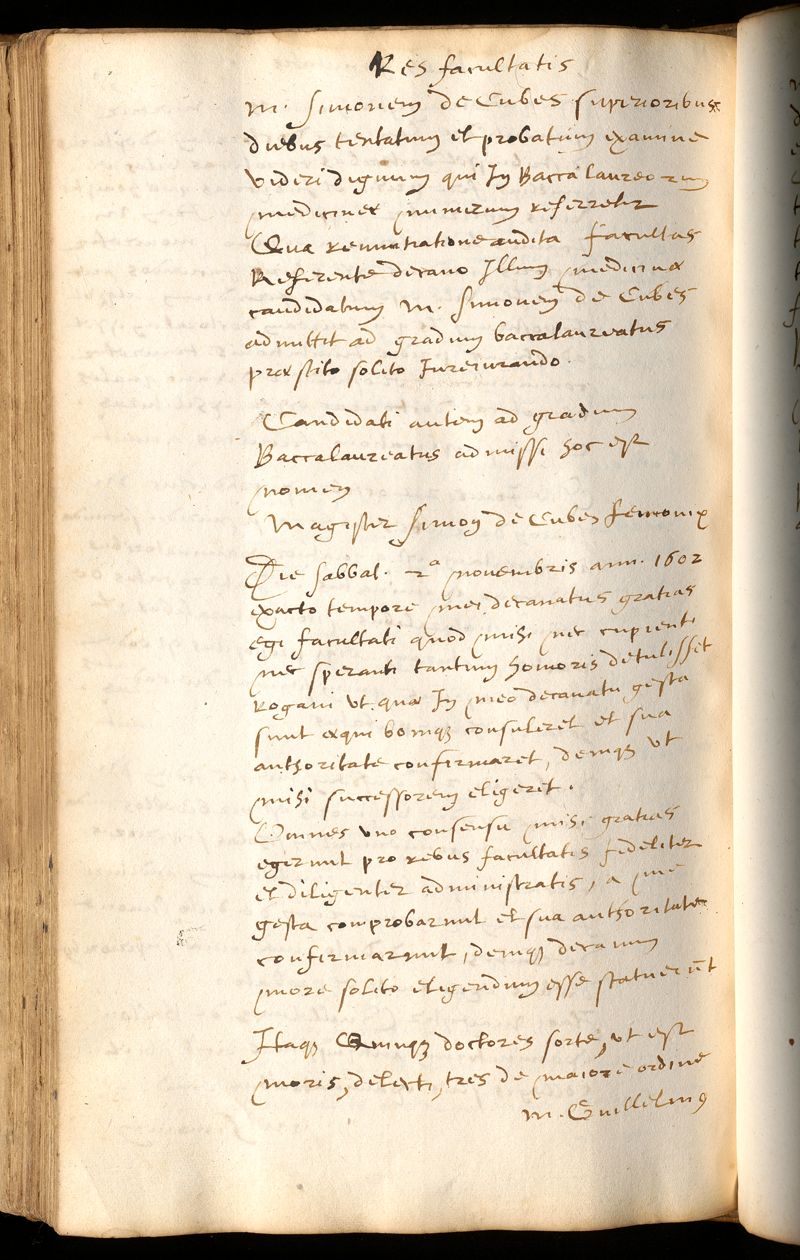 Res facultatis
M. Simonem de Cubes superioribus
diebus tentatum et probatum examine
videri dignum qui In Baccalaureorum
medicinæ numerum referretur
Qua renuntiatione audita facultas
Referente decano Illum medicinæ
candidatum M. Simonem de Cubes
admittit ad gradum baccalaureatus
præstito solito Jureiurando.
Candidati autem ad gradum
Baccalaureatus admissi hoc est
nomen
Magister Simon de Cubes
Die sabbat. 2ª novembris ann. 1602
exacto tempore mei decanatus gratias
egi facultati quod mihi nec cupienti
nec speranti tantum honoris detulisset
Rogavi vt quæ In meo decanatu gesta
sunt æqui boniq; consuleret et sua
authoritate confirmaret, deniq; vt
mihi successorem eligeret.
Omnes vno consensu mihi gratias
egerunt pro rebus facultatis fideliter
et diligenter administratis, a me
gesta comprobarunt et sua authoritate
confirmarunt, deniq; decanum
more solito eligendum esse statuerūt
Itaq; Quinq; doctores sorte, vt est
moris, delecti, tres de maiore ordine
M. Guillelmus